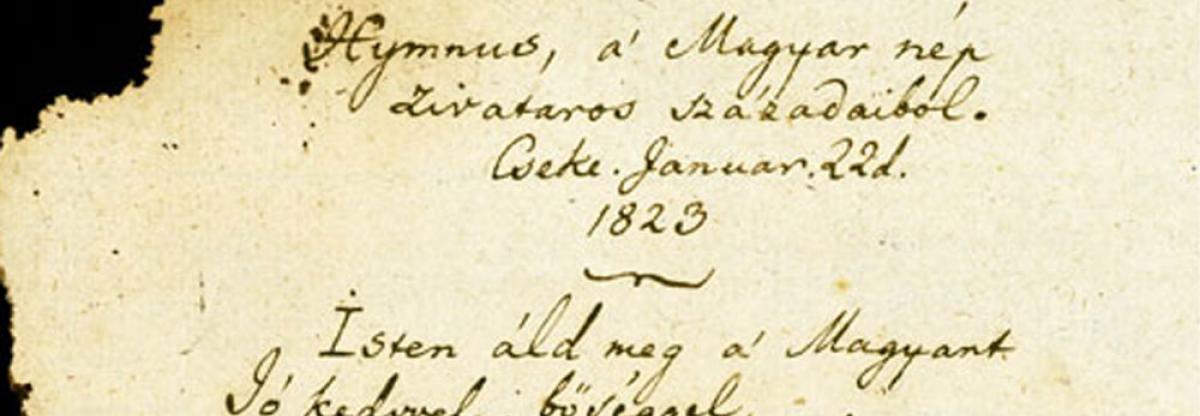 Hymnus, a' Magyar nép
zivataros századaiból.
Cseke. Januar. 22d.
1823
Isten áld meg a' Magyart
Jó kedvvel, bőséggel,